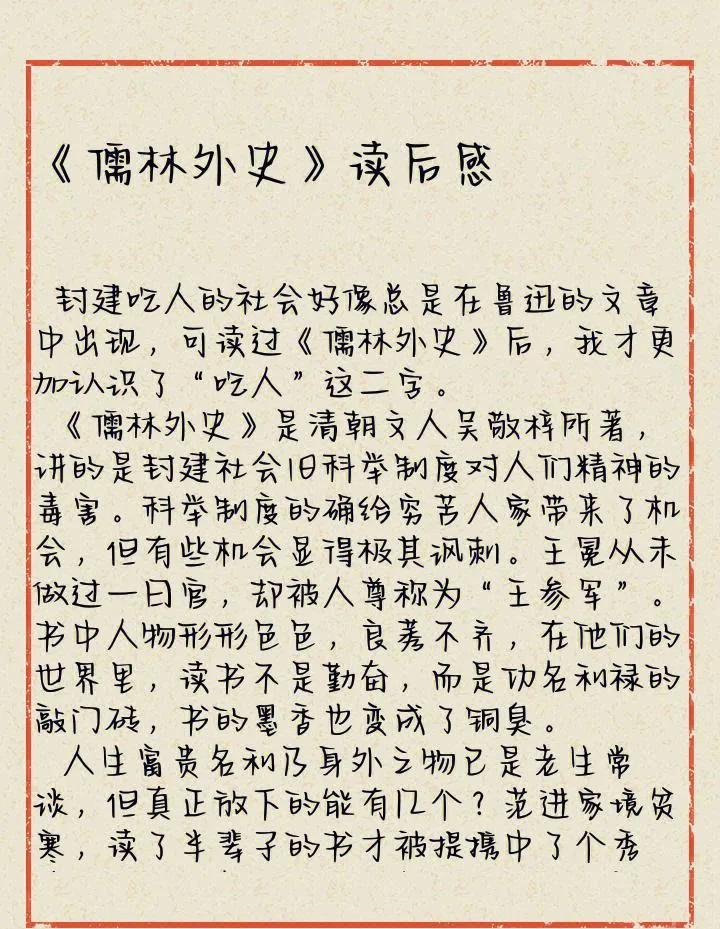 《儒林外史》读后感
封建吃人的社会好像总是在鲁迅的文章
中出现，可读过《儒林外史》后，我才更
加认识了“吃人”这二字。
《儒林外史》是清朝文人吴敬梓所著，
讲的是封建社会旧科举制度对人们精神的
毒害。科举制度的确给穷苦人家带来了机
会，但有些机会显得极其讽刺。王冕从未
做过一日官，却被人尊称为“王参军”。
书中人物形形色色，良莠不齐，在他们的
世界里，读书不是勤奋，而是功名利禄的
敲门砖，书的墨香也变成了铜臭。
人生富贵名利乃身外之物已是老生常
谈，但真正放下的能有几个？范进家境贫
寒，读了半辈子的书才被提携中了个秀